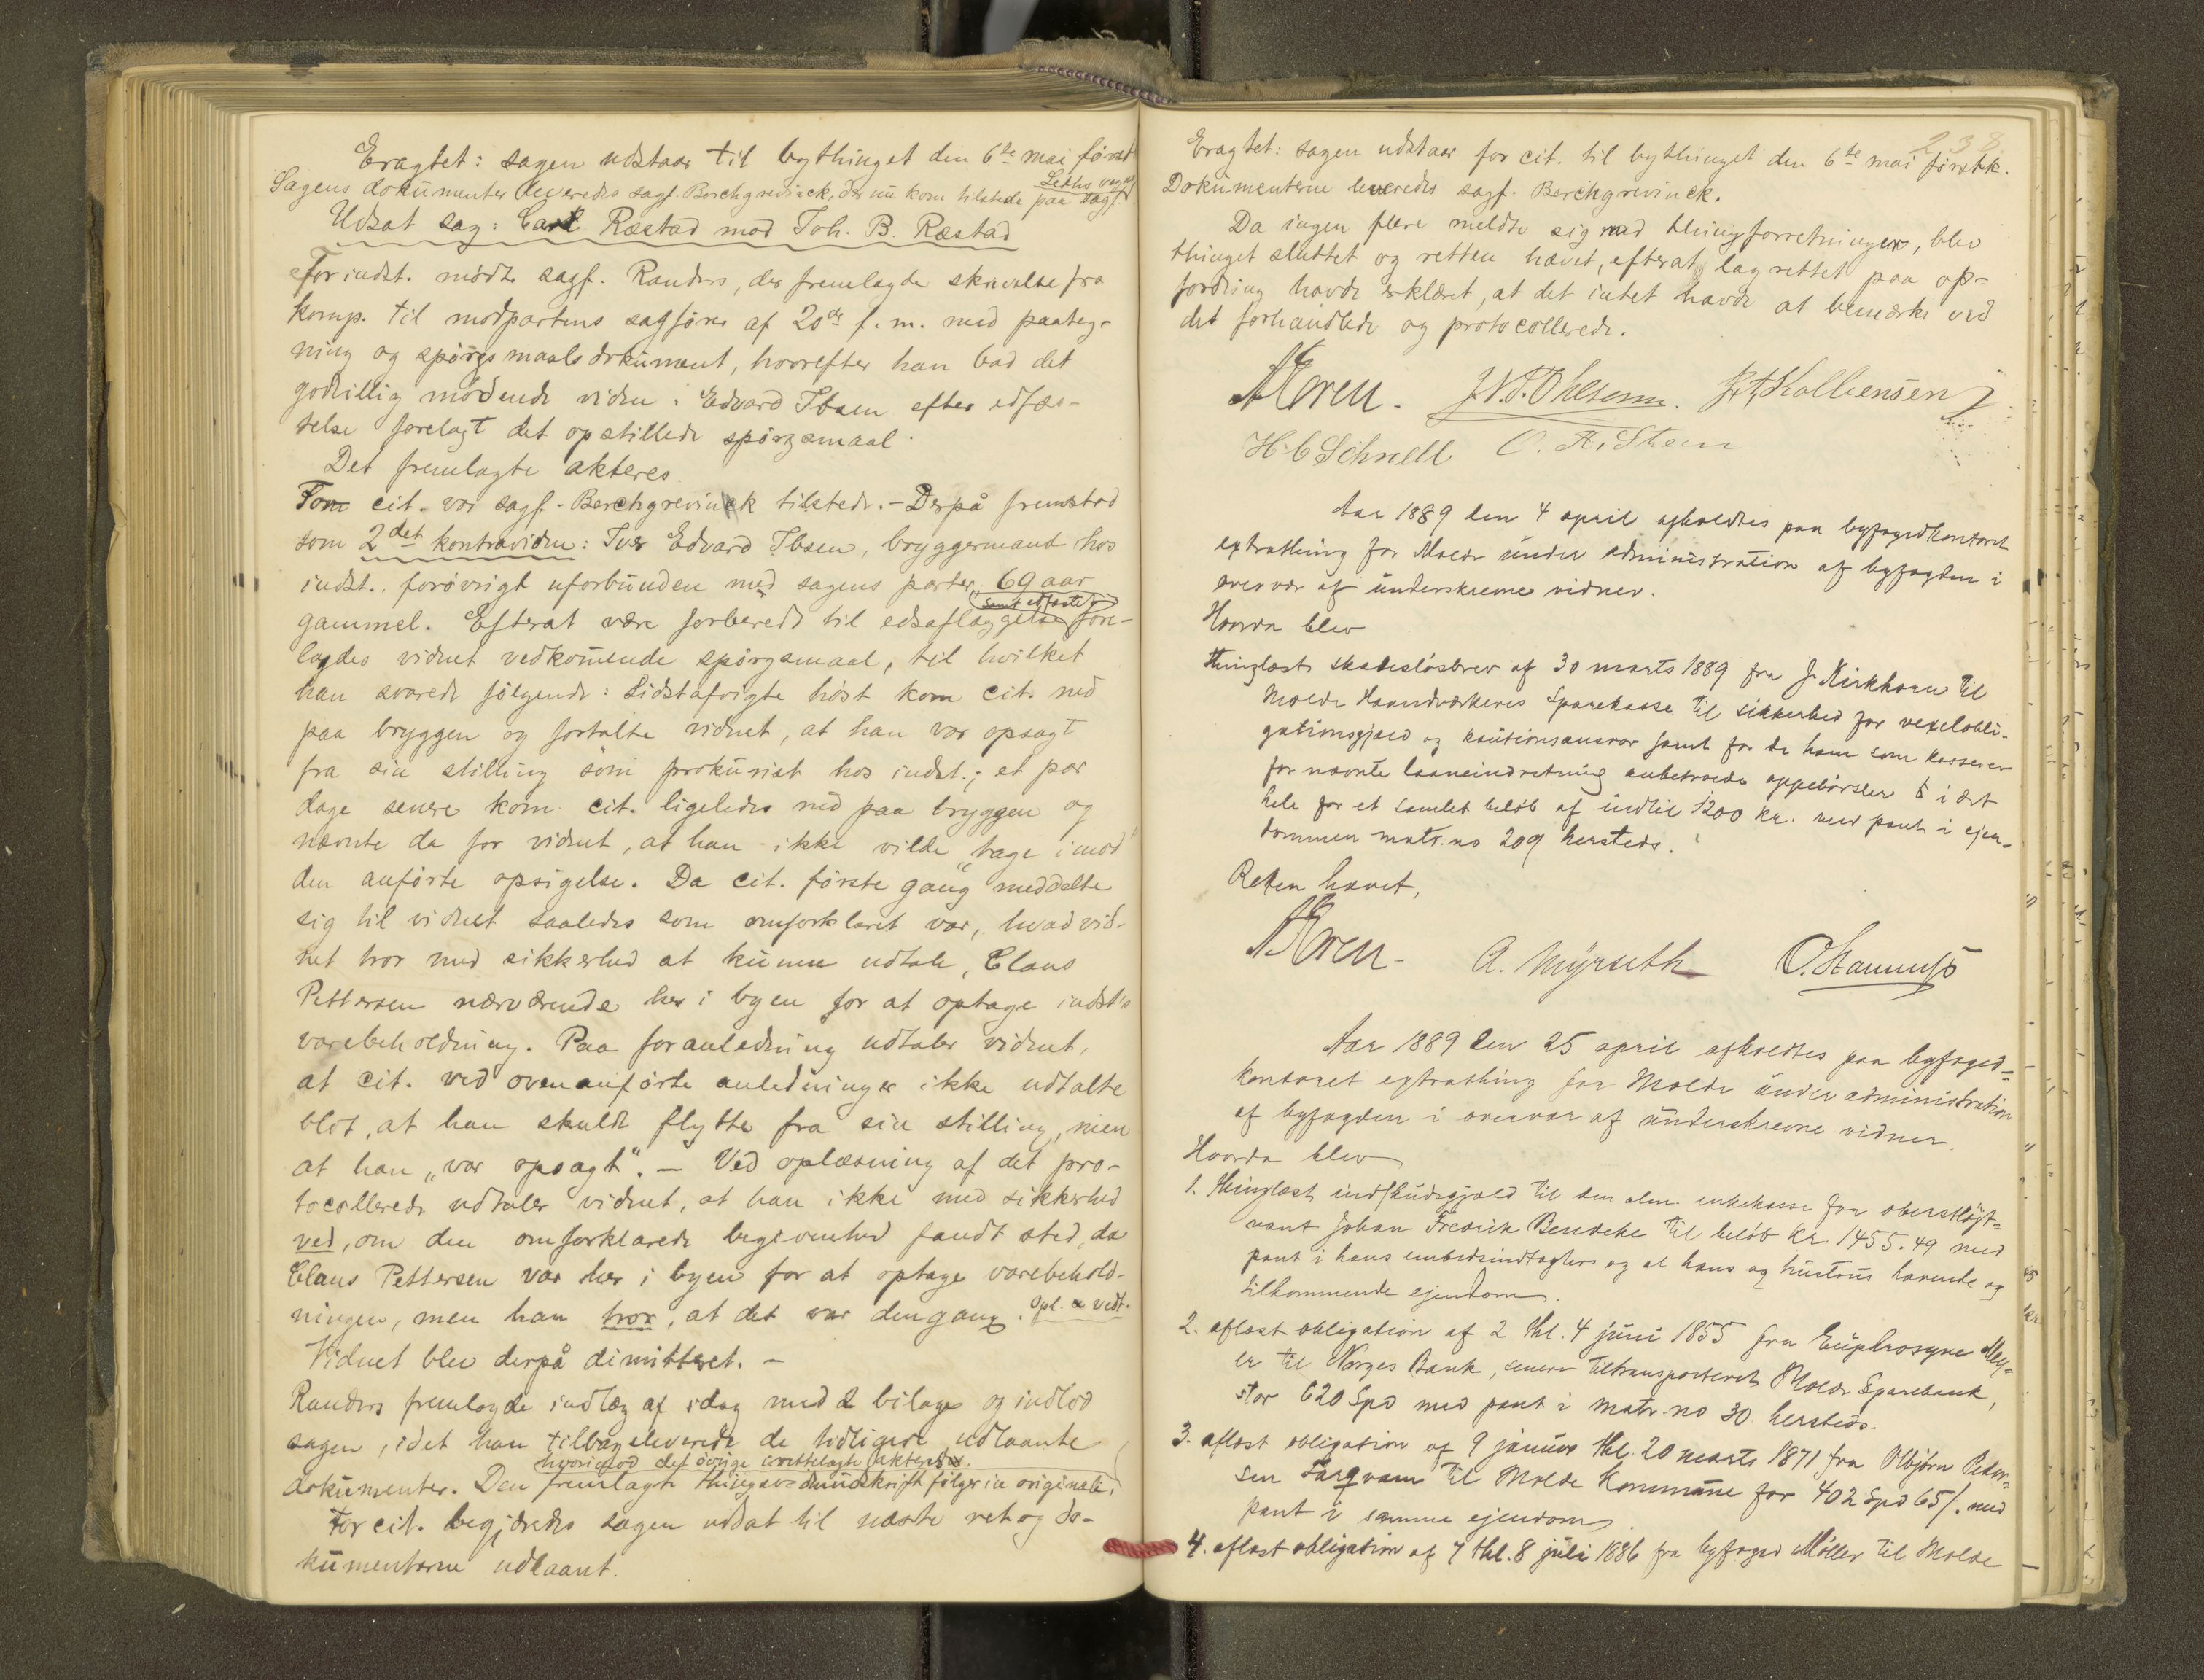 Eragtet: sagen udstaar til bythinget den 6te mai førstk.
Sagens dokumenter leveredes sagf. Berchgrevinck, der nu kom tilstede paa sagf. Leths vegne
Udsat sag: Carl Ræstad mod Joh. B. Ræstad
For indst. mødte sagf. Randers, der fremlagde skrivelse fra
komp. til modpartens sagfører af 20de f.m. med paateg-
ning og spørgsmaalsdokument, hvorefter han bad det
godvillig mødende vidne: Edvard Ibsen efter edfæs-
telse forelagt det opstillede spørgsmaal.
Det fremlagte akteres.
For cit. var sagf. Berchgrevinck tilstede. – Derpå fremstod
som 2det kontravidne: Iver Edvard Ibsen, bryggermand hos
indst., forøvrigt uforbunden med sagens parter, 69 aar
gammel. Efterat være forberedt til edsaflæggelse (samt edfæstet) fore-
lagdes vidnet vedkommende spørgsmaal, til hvilket
han svarede følgende: Sidstafvigte høst kom cit. ned
paa bryggen og fortalte vidnet, at han var opsagt
fra sin stilling som prokurist hos indst.; et par
dage senere kom cit. ligeledes ned paa bryggen og
nævnte da for vidnet, at han ikke vilde „tage imod"
den anførte opsigelse. Da cit. første gang meddelte
sig til vidnet saaledes som omforklaret var, hvad vid-
net tror med sikkerhed at kunne udtale, Claus
Pettersen nærværende her i byen for at optage indst's
varebeholdning. Paa foranledning udtaler vidnet,
at cit. ved ovenanførte anledninger ikke udtalte
blot, at han skulde flytte fra sin stilling, men
at han „var opsagt". – Ved oplæsning af det pro-
tocollerede udtaler vidnet, at han ikke med sikkerhed
ved, om den omforklarede begivenhed fandt sted, da
Claus Pettersen var her i byen for at optage varebehold-
ningen, men han tror, at det var dengang. Opl. & vedt.
Vidnet blev derpå dimitteret. –
Randers fremlagde indlæg af idag med 2 bilage og indlod
sagen, idet han tilbageleverede de tidligere udlaante
hvorimod det øvrige irettelagte akteres.
dokumenter. Den fremlagte thingsvidneudskrift følger in originali.
For cit. begjæredes sagen udsat til næste ret og do-
kumenterne udlaant.
238
Eragtet: sagen udstaar for cit. til bythinget den 6te mai førstk.
Dokumenterne leveredes sagf. Berchgrevinck.
Da ingen flere meldte sig med thingforretninger, blev
thinget sluttet og retten hævet, efterat lagrettet paa op-
fordring havde erklæret, at det intet havde at bemærke ved
det forhandlede og protocollerede.
J. N. B. Ohlsenn. Kolbensen
H. C Schnell O. A. Steen
Aar 1889 den 4 april afholdtes paa byfogedkontoret
extrathing for Molde under administration af byfogden i
overvær af underskrevne vidner.
Hvorda blev
Thinglæst skadesløsbrev af 30 marts 1889 fra J. Kirkhorn til
Molde Haandværkeres Sparekasse til sikkerhed for vexelobli-
gationsgjæld og kautionsansvar samt for de ham som kasserer
for nævnte laaneindretning anbetroede oppebørsler i det
hele for et samlet beløb af indtil 1200 kr. med pant i ejen-
dommen matr. no 209 hersteds.
Retten hævet,
A. Myrseth O. Stamnesø
Aar 1889 den 25 april afholdtes paa byfoged=
kontoret extrathing for Molde under administration
af byfogden i overvær af underskrevne vidner
Hvorda blev
1. Thinglæst indskudsgjæld til den alm. enkekasse for oberstløjt=
nant Johan Fredrik Bendeke til beløb kr. 1455.49 med
pant i hans embedsindtægter og al hans og hustrus havende og
tilkommende ejendom.
2. aflæst obligation af 2 thl. 4 juni 1855 fra Euphrosyne Mey=
er til Norges Bank, senere tiltransporteret Molde Sparebank,
stor 620 Spd med pant i matr. no 30 hersteds.
3. aflæst obligation af 9 januar thl. 20 marts 1871 fra Olbjørn Peder=
sen Farqvam til Molde Kommune for 402 Spd 65 /. med
pant i samme ejendom
4. aflæst obligation af 7 thl. 8 juli 1886 fra byfoged Møller til Molde